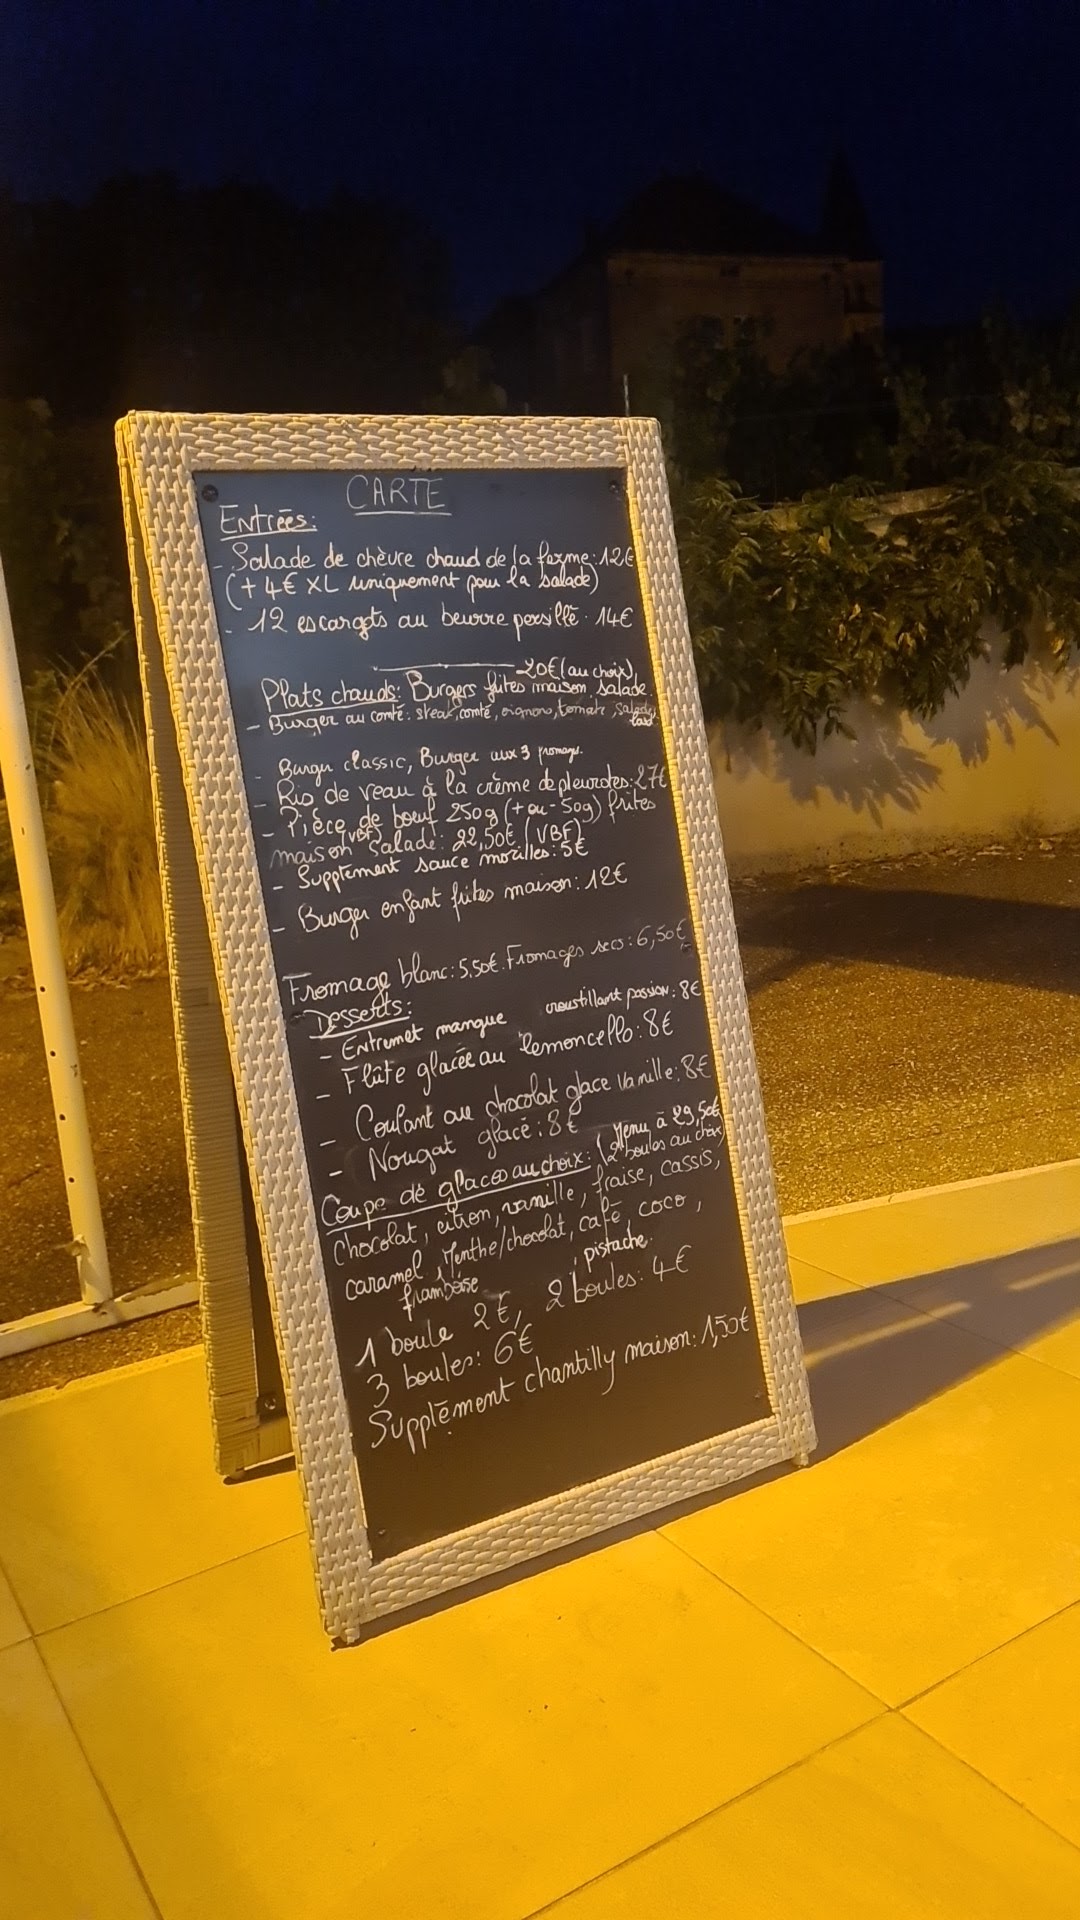 CARTE
Entrées:
- Salade de chèvre chaud de la ferme: 12€
(+ 4€ XL uniquement pour la salade)
- 12 escargots au beurre persillé: 14€
20€ (au choix)
Plats chauds: Burgers frites maison salade
- Burger au comté: steak, comté, oignons, tomate, salade,
lard
- Burger classic, Burger aux 3 fromages.
- Ris de veau à la crème de pleurotes: 27€
- Pièce de boeuf 250g (+ ou - 50g) frites
(VBF)
maison salade: 22,50€ (VBF)
- Supplément sauce morilles: 5€
- Burger enfant frites maison: 12€
Fromage blanc: 5,50€. Fromages secs: 6,50€
Desserts:
- Entremet mangue croustillant passion: 8€
- Flûte glacée au lemoncello: 8€
- Coulant au chocolat glace vanille: 8€
- Nougat glacé: 8€
Coupe de glaces au choix: (Menu à 29,50€
2 boules au choix)
Chocolat, citron, vanille, fraise, cassis,
caramel, Menthe/chocolat, café, coco,
framboise, pistache.
1 boule 2€, 2 boules: 4€
3 boules: 6€
Supplément chantilly maison: 1,50€